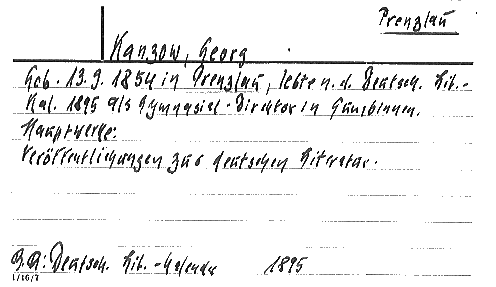 Prenzlau
Kanzow, Georg
Geb. 13.9.1854 in Prenzlau, lebte n. d. Deutsch. Lit.-
Kal. 1895 als Gymnasial-Direktor in Gumbinnen.
Hauptwerke:
Veröffentlichungen zur deutschen Literatur.
B.A: Deutsch. Lit.-Kalender 1895
1/16/7